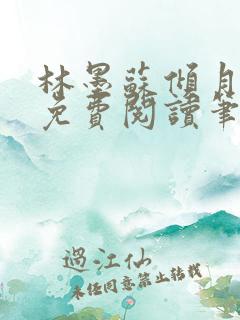 林墨蘇傾月
免費閱讀筆
過江仙
未經同意禁止轉載